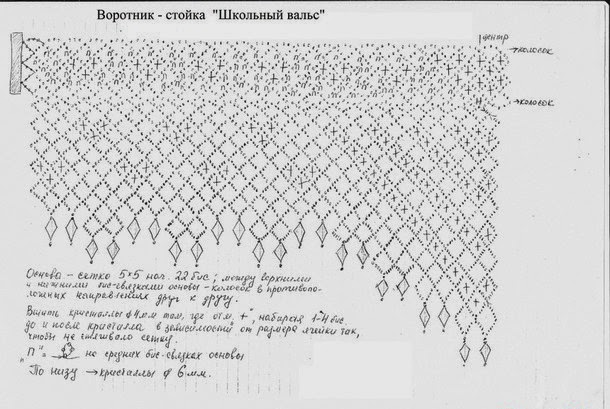 Воротник - стойка "Школьный вальс"
центр
→колосок
→колосок
Основа – сетка 5×5 нач. 22 бис; между верхними
и нижними бис-связками основы – колосок в противопо-
ложных направлениях друг к другу.
Вшить кристаллы ϕ 4мм там, где отм. +, набирая 1-4 бис.
до и после кристалла в зависимости от размера ячейки так,
чтобы не стягивало сетку.
"П"= на средних бис-связках основы
По низу → кристаллы ϕ 6 мм.